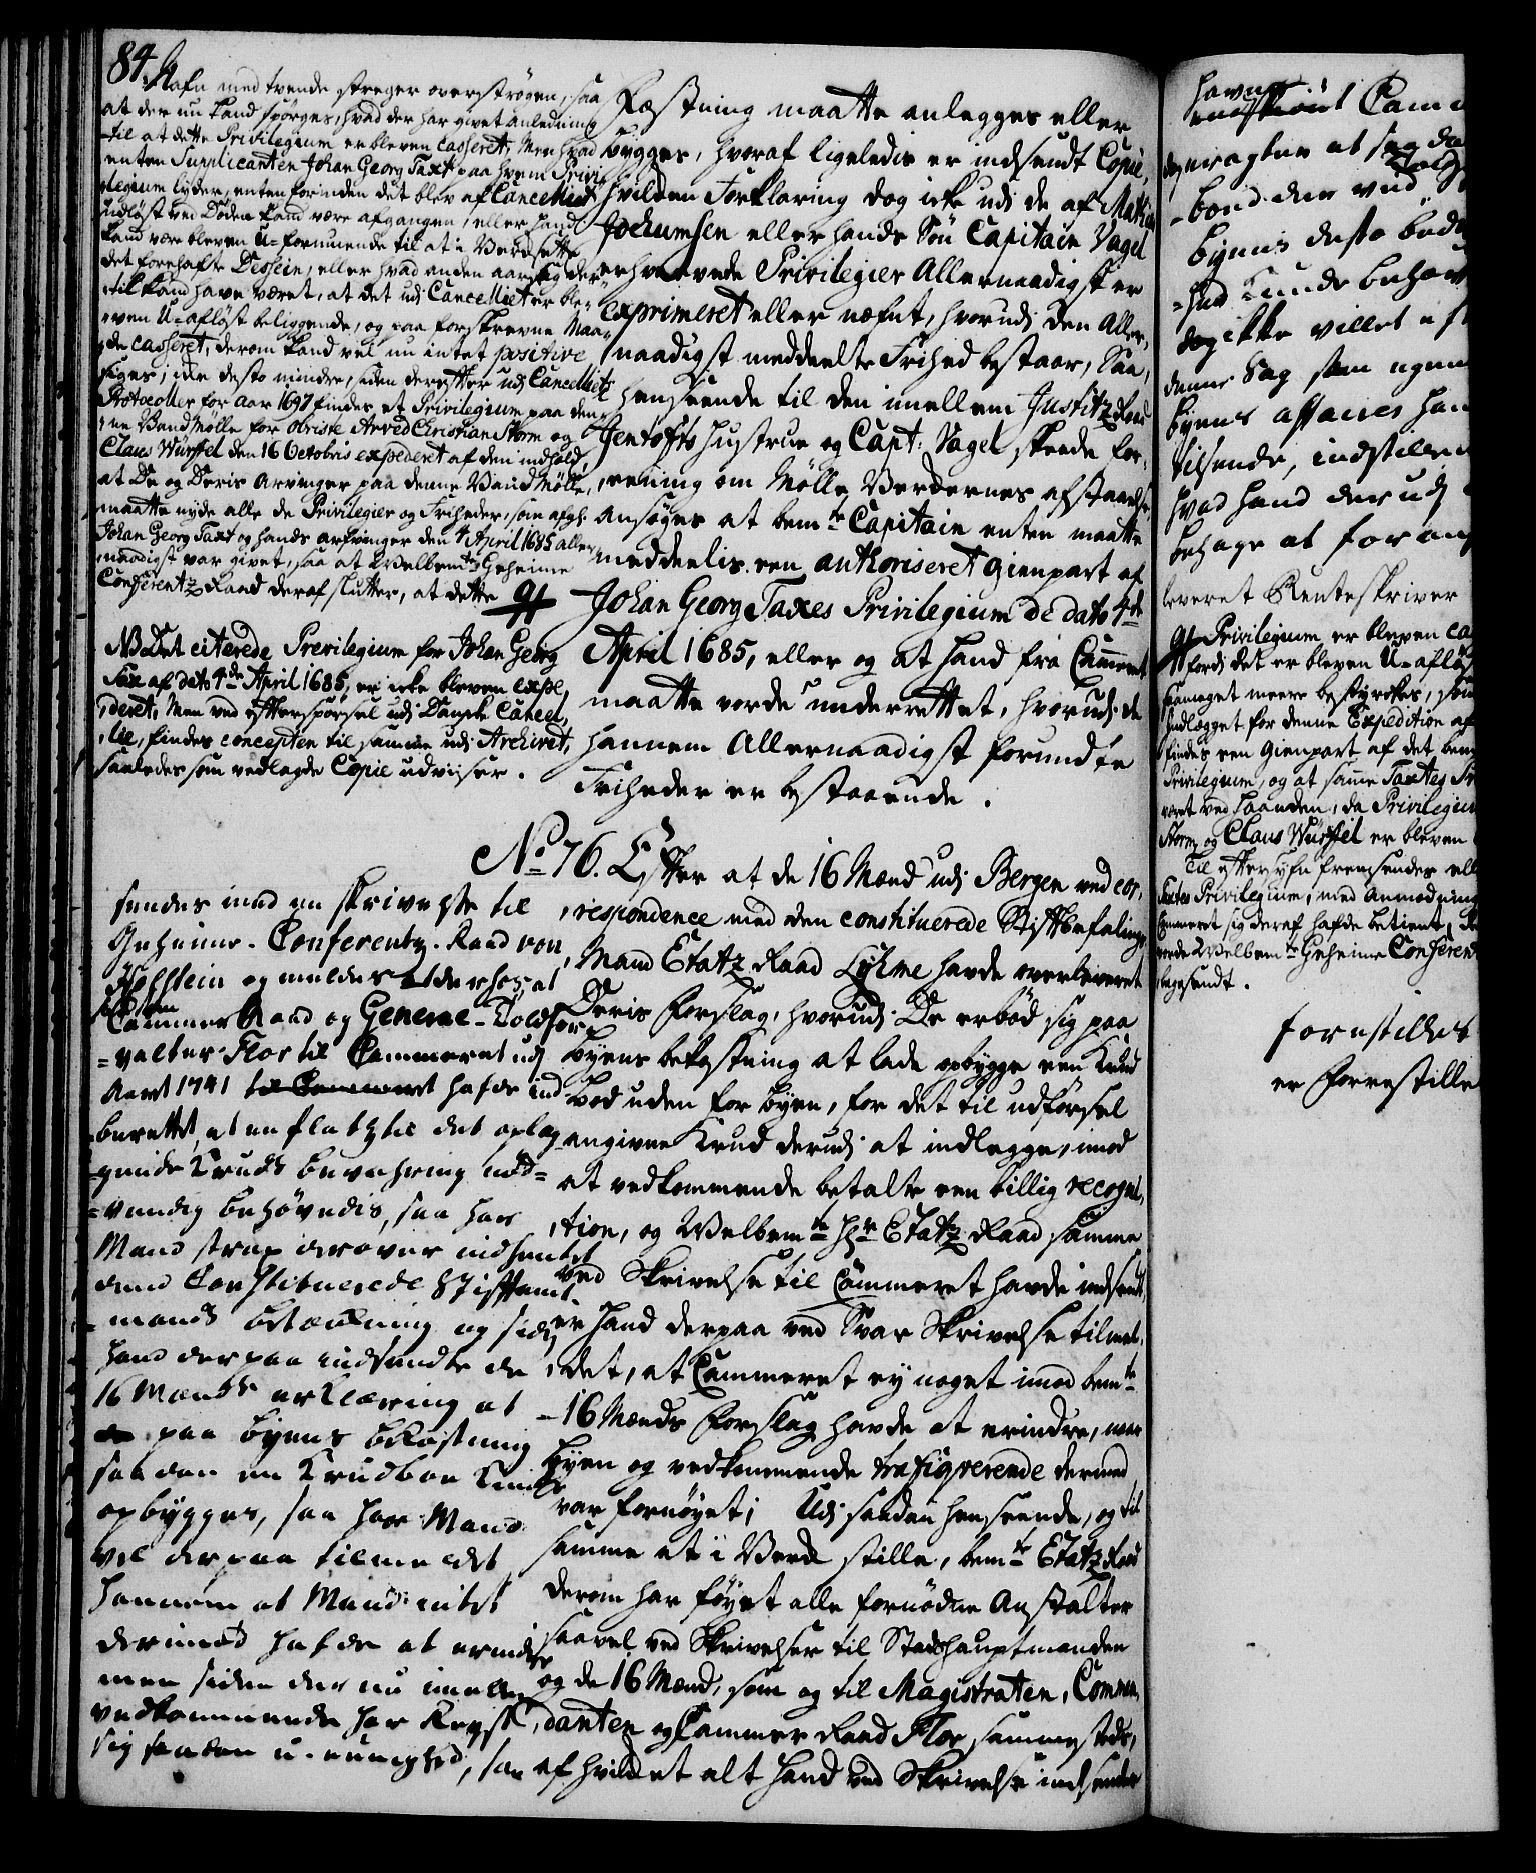 84.
Nafn med tvende streger overstrøgen, saa
at der nu kand spørges, hvad der har givet anledning
til at dette Privilegium er bleven casseret, Men hvad
enten Supplicanten Johan Georg Taxt paa hvem Privi-
legium lyder, enten forinden det blev af Cancelliet
indløst ved Døden kand være afgangen, eller hand
kand være bleven U-formuende til at i Verksette
det forehafte Dessein, eller hvad anden aarsag der
til kand have været, at det udj Cancelliet er ble-
ven U-afløst beliggende, og paa forskrevne Maa-
de casseret, derom kand vel nu intet positive
siges; icke desto mindre, siden derefter udj Cancelliets
Protocoller for Aar 1697 findes et Privilegium paa den-
ne Vand Mølle for Obriste Arved Christian Storm og
Claus Würffel den 16 Octobris expederet af den indhold,
at De og Deris Arvinger paa denne Vand Mølle,
maatte nyde alle de Privilegier og Friheder, som afg:
Johan Georg Taxt og hands arfvinger den 4 April 1685 aller-
naadigst var givet, saa at Velbemte Geheime
Conferentz Raad deraf slutter, at dette
NB Det citerede Previlegium for Johan Georg
Tax af dato 4de April 1685, er icke bleven expe-
deret, Men ved efterspørsel udj Danske Cancel-
lie, findes concepten til samme udj Archivet,
saaledes som vedlagde Copie udviiser.
Fæstning maatte anlegges eller
bygges, hvoraf ligeledis er indsendt Copie,
hvilken Forklaring dog icke udj de af Mathias
Jochumsen eller hands Søn Capitain Vagel
erhvervede Privilegier Allernaadigst er
exprimeret eller næfnt, hvorudj den Aller-
naadigst meddeelte Frihed bestaar, Saa,
henseende til den imellem Justitz Raad
Jentofts Hustrue og Capt: Vagel skeede for-
eening om Mølle Verdernes afstaaelse,
ansøges at bemte Capitain enten maatte
meddeelis een authoriseret Gienpart af
Johan Georg Taxes Privilegium de dato 4de
April 1685, eller og at hand fra Cammeret
maatte vorde underrettet, hvorudj de
hannem Allernaadigst forundte
Friheder er bestaaende.
No 76. Efter at de 16 Mænd udj Bergen ved cor-
respondence med den constituerede Stiftbefalings-
Mand Etatz Raad Lyhme havde overleveret
Deris Forslag, hvorudj De erbød sig paa
Byens bekostning at lade opbygge een Krud
Bod uden for byen, for det til udførsel
angivne Krud derudj at indlegge, imod
at vedkommende betalte een billig recogni-
tion, og Velbemte Hr Etatz Raad samme
ved Skrivelse til Cammeret havde indsendt,
er Hand derpaa ved Svar Skrivelse tilmel-
det, at Cammeret ey noget imod bemte
16 Mænds Forslag havde at erindre, naar
byen og vedkommende trafiqverende dermed
var fornøyet; Udj saadan henseende, og til
samme at i Verk stille, bemte Etatz Raad
derom har føyet alle fornødne Anstalter
saavel ved Skrivelser til Stadshauptmanden
og de 16 Mænd, som og til Magistraten, Commen-
danten og Cammer Raad Flor sammesteds,
af hvilket alt Hand ved Skrivelse indsender
sendes med en skrivelse til
Geheime-Conferentz-Raad von
Holstein og meldes derhos, at
siden
Cammer Raad og General-Toldfor-
valter Flor til Cammeret udj
Aaret 1741 til Cammeret hafde ind-
berettet, at en plads til det oplag-
gende Kruds bevahring nød-
vendig behøvedis, saa har
Mand strax derover indhentet
dend Constituerede Stiftamt-
mands betænkning og siden
hand derpaa indsendte de
16 Mænds erklæring at
paa byens bekostning
saadan en Krudboe kunde
opbygges, saa har Mand
vel derpaa tilmeldet
hannem at Mand intet
derimod hafde at erindre
men siden der nu imellem
vedkommende har Reyst
sig saadan u-eenighed, saa
havn
Cam
eragter at sag
bod der ved
byens desto bed
hed Kunde
dog ikke villet
denne Sag som
byens affaires
tilsende, indstille
hvad hand der udj
behage at foran
leveret Renteskriver
Privilegium er bleven ca
fordi det er bleven U-afløs
saameget meere bestyrckes, som
Indlegget for denne Expedition af
findes een Gienpart af det bem
Privilegium, og at samme Taxtes Pr
været ved haanden, da Privilegiu
Storm og Claus Würffel er bleven
Til eftersyn fremsendes ell
Taxtes Privilegium, med Anmodning
Cammeret sig deraf hafde betient, de
Velbemte Geheime Conferen
igesendt.
forestilles
er Forrestille